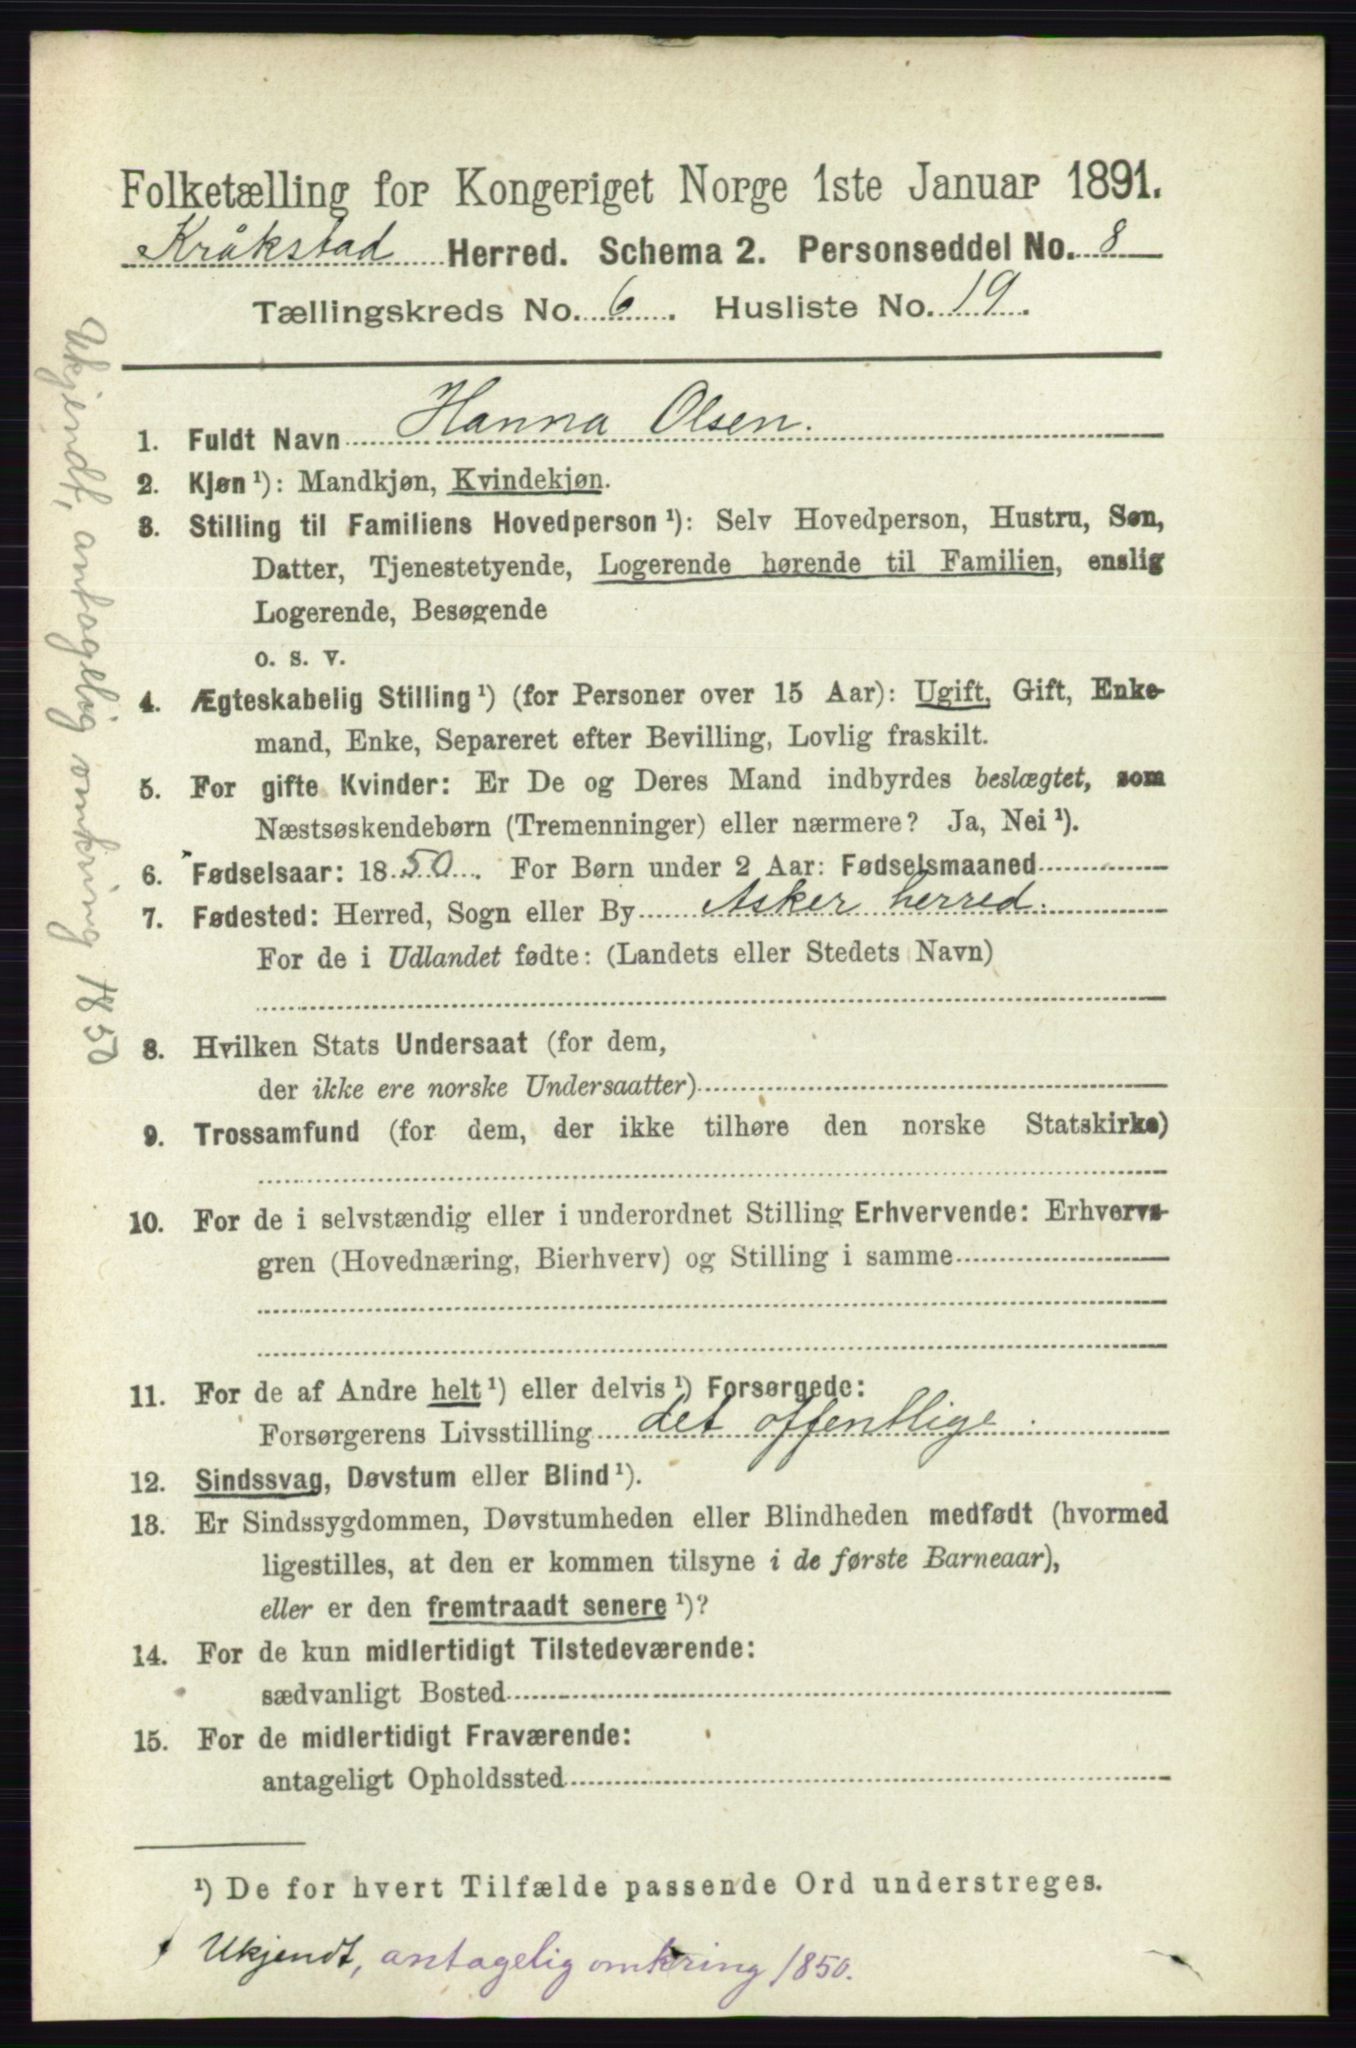 Folketælling for Kongeriget Norge 1ste Januar 1891.
Kråkstad Herred. Schema 2. Personseddel No. 8
Tællingskreds No. 6. Husliste No. 19.
1. Fuldt Navn Hanna Olsen.
2. Kjøn ¹): Mandkjøn, Kvindekjøn.
3. Stilling til Familiens Hovedperson ¹): Selv Hovedperson, Hustru, Søn,
Datter, Tjenestetyende, Logerende hørende til Familien, enslig
Logerende, Besøgende
o. s. v.
4. Ægteskabelig Stilling ¹) (for Personer over 15 Aar): Ugift, Gift, Enke-
mand, Enke, Separeret efter Bevilling, Lovlig fraskilt.
5. For gifte Kvinder: Er De og Deres Mand indbyrdes beslægtet, som
Næstsøskendebørn (Tremenninger) eller nærmere? Ja, Nei ¹).
6. Fødselsaar: 1850. For Børn under 2 Aar: Fødselsmaaned
7. Fødested: Herred, Sogn eller By Asker herred.
For de i Udlandet fødte: (Landets eller Stedets Navn)
8. Hvilken Stats Undersaat (for dem,
der ikke ere norske Undersaatter)
9. Trossamfund (for dem, der ikke tilhøre den norske Statskirke)
10. For de i selvstændig eller i underordnet Stilling Erhvervende: Erhvervs-
gren (Hovednæring, Bierhverv) og Stilling i samme
11. For de af Andre helt ¹) eller delvis ¹) Forsørgede:
Forsørgerens Livsstilling det offentlige.
12. Sindssvag, Døvstum eller Blind ¹).
13. Er Sindssygdommen, Døvstumheden eller Blindheden medfødt (hvormed
ligestilles, at den er kommen tilsyne i de første Barneaar),
eller er den fremtraadt senere ¹)?
14. For de kun midlertidigt Tilstedeværende:
sædvanligt Bosted
15. For de midlertidigt Fraværende:
antageligt Opholdssted
¹) De for hvert Tilfælde passende Ord understreges.
Ukjendt, antagelig omkring 1850.
Ukjendt, antagelig omkring 1850